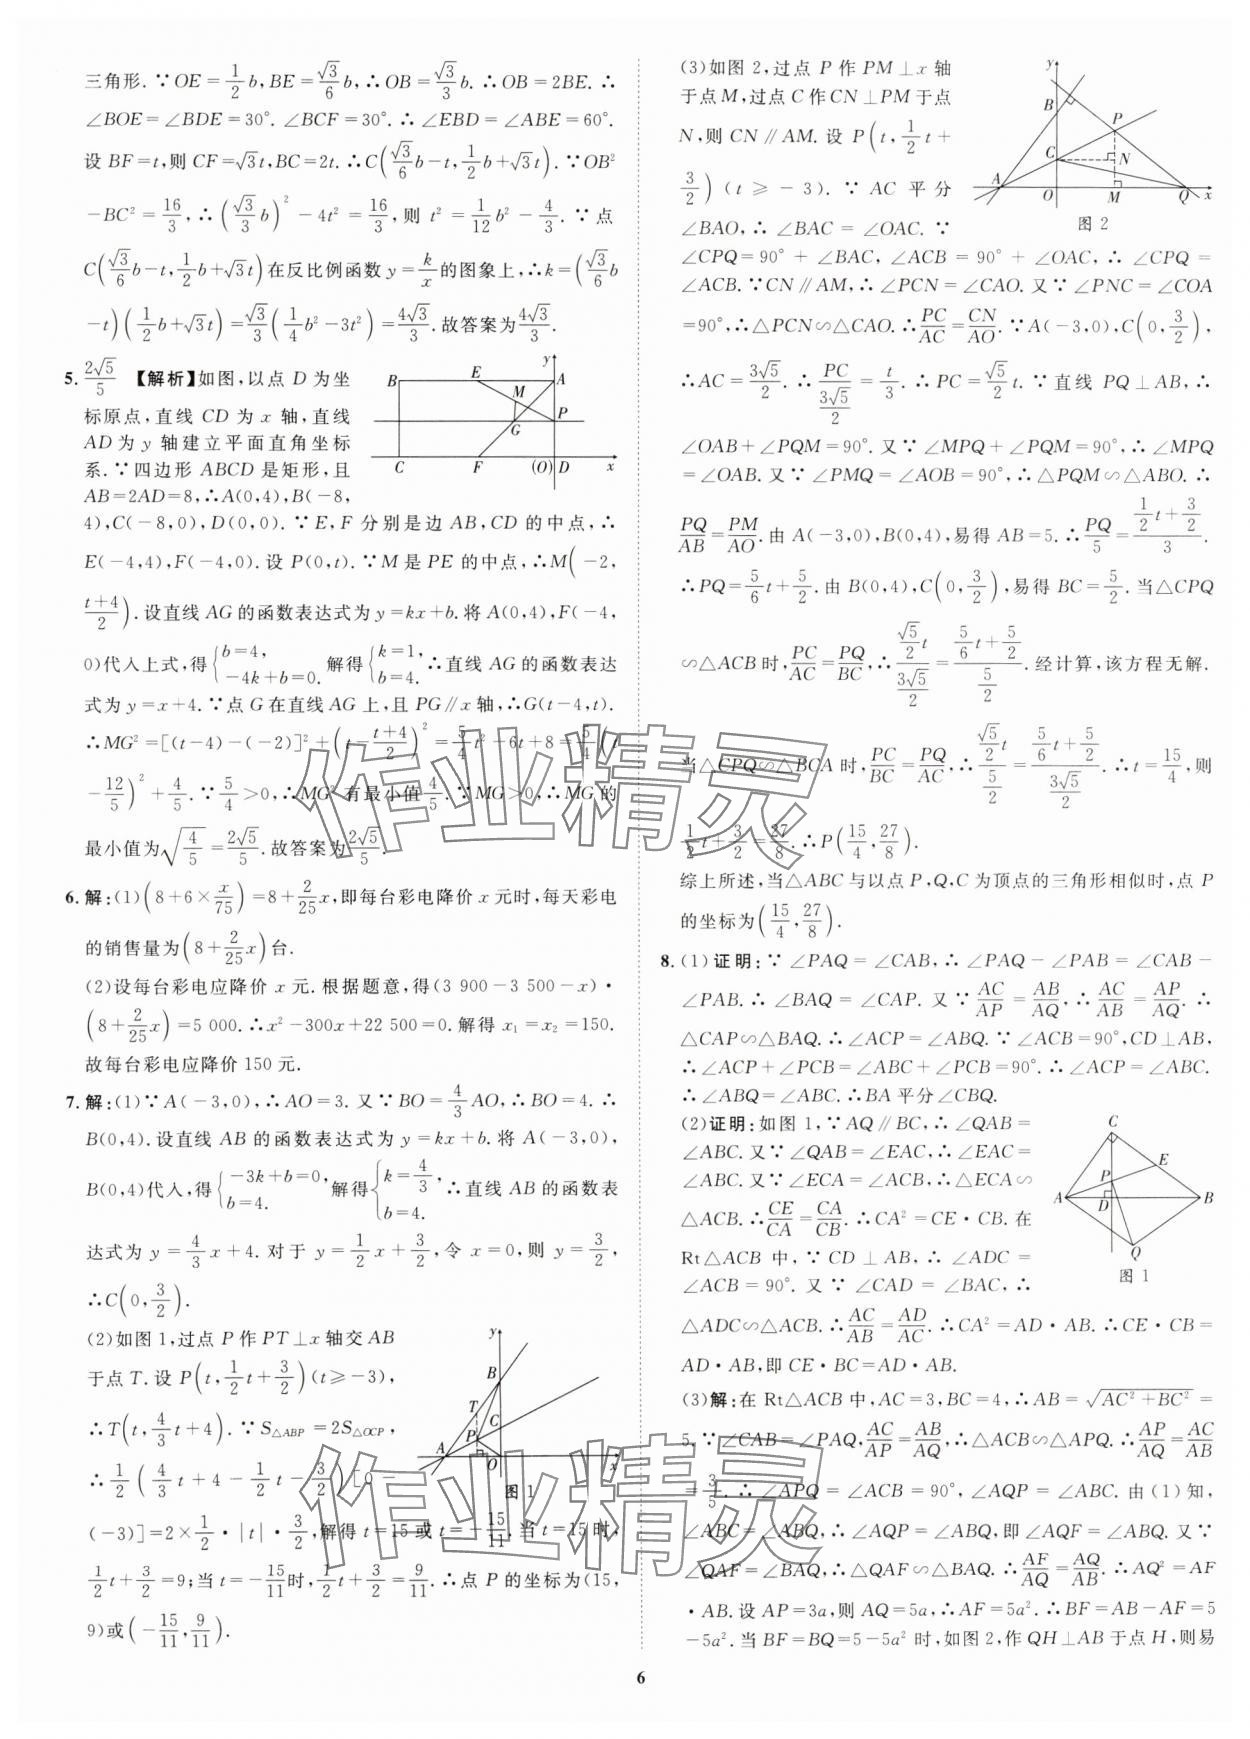 三角形. ∵OE=1/2 b,BE=√3/6 b,∴OB=√3/3 b.∴OB=2BE.∴
∠BOE=∠BDE=30°.∠BCF=30°.∴∠EBD=∠ABE=60°.
设 BF=t,则 CF=√3t,BC=2t.∴C(√3/6 b-t,1/2 b+√3t).∵OB²
-BC²=16/3,∴(√3/3 b)²-4t²=16/3,则 t²=1/12 b²-4/3.∵点
C(√3/6 b-t,1/2 b+√3t)在反比例函数 y=k/x 的图象上,∴k=(√3/6 b
-t)(1/2 b+√3t)=√3/3(1/4 b²-3t²)=4√3/3.故答案为4√3/3.
5. 2√5/5 【解析】如图,以点 D 为坐
标原点,直线 CD 为 x 轴,直线
AD 为 y 轴建立平面直角坐标
系.∵四边形 ABCD 是矩形,且
AB=2AD=8,∴A(0,4),B(-8,
4),C(-8,0),D(0,0).∵E,F 分别是边 AB,CD 的中点,∴
E(-4,4),F(-4,0).设 P(0,t).∵M 是 PE 的中点,∴M(-2,
(t+4)/2).设直线 AG 的函数表达式为 y=kx+b.将 A(0,4),F(-4,
0)代入上式,得{b=4, -4k+b=0. 解得{k=1, b=4. ∴直线 AG 的函数表达
式为 y=x+4.∵点 G 在直线 AG 上,且 PG∥x 轴,∴G(t-4,t).
∴MG²=[(t-4)-(-2)]²+(t-(t+4)/2)²=5/4 t²-6t+8=5/4(t
-12/5)²+4/5.∵5/4>0,∴MG²有最小值4/5.∵MG>0,∴MG 的
最小值为√(4/5)=2√5/5.故答案为2√5/5.
y
B
E
A
M
P
G
C
F
(O)
D
x
6. 解:(1)(8+6×x/75)=8+2/25 x,即每台彩电降价 x 元时,每天彩电
的销售量为(8+2/25 x)台.
(2)设每台彩电应降价 x 元.根据题意,得(3 900-3 500-x)·
(8+2/25 x)=5 000.∴x²-300x+22 500=0.解得 x₁=x₂=150.
故每台彩电应降价 150 元.
7. 解:(1)∵A(-3,0),∴AO=3.又∵BO=4/3 AO,∴BO=4.∴
B(0,4).设直线 AB 的函数表达式为 y=kx+b.将 A(-3,0),
B(0,4)代入,得{-3k+b=0, b=4. 解得{k=4/3, b=4. ∴直线 AB 的函数表
达式为 y=4/3 x+4.对于 y=1/2 x+3/2,令 x=0,则 y=3/2,
∴C(0,3/2).
(2)如图 1,过点 P 作 PT⊥x 轴交 AB
于点 T.设 P(t,1/2 t+3/2)(t≥-3),
∴T(t,4/3 t+4).∵S△ABP=2S△OCP,
∴1/2(4/3 t+4-1/2 t-3/2)[0-
(-3)]=2×1/2·|t|·3/2,解得 t=15 或 t=-15/11.当 t=15 时,
1/2 t+3/2=9;当 t=-15/11时,1/2 t+3/2=9/11.∴点 P 的坐标为(15,
9)或(-15/11,9/11).
y
B
T
C
P
A
O
x
图 1
(3)如图 2,过点 P 作 PM⊥x 轴
于点 M,过点 C 作 CN⊥PM 于点
N,则 CN∥AM.设 P(t,1/2 t+
3/2)(t≥-3).∵AC 平分
∠BAO,∴∠BAC=∠OAC.∵
∠CPQ=90°+∠BAC,∠ACB=90°+∠OAC,∴∠CPQ=
∠ACB.∵CN∥AM,∴∠PCN=∠CAO.又∵∠PNC=∠COA
=90°,∴△PCN∽△CAO.∴PC/AC=CN/AO.∵A(-3,0),C(0,3/2),
∴AC=3√5/2.∴PC/(3√5/2)=t/3.∴PC=√5/2 t.∵直线 PQ⊥AB,∴
∠OAB+∠PQM=90°.又∵∠MPQ+∠PQM=90°,∴∠MPQ
=∠OAB.又∵∠PMQ=∠AOB=90°,∴△PQM∽△ABO.∴
PQ/AB=PM/AO.由 A(-3,0),B(0,4),易得 AB=5.∴PQ/5=(1/2 t+3/2)/3.
∴PQ=5/6 t+5/2.由 B(0,4),C(0,3/2),易得 BC=5/2.当△CPQ
∽△ACB 时,PC/AC=PQ/BC,∴(√5/2 t)/(3√5/2)=(5/6 t+5/2)/(5/2).经计算,该方程无解.
当△CPQ∽△BCA 时,PC/BC=PQ/AC,∴(√5/2 t)/(5/2)=(5/6 t+5/2)/(3√5/2).∴t=15/4,则
1/2 t+3/2=27/8.∴P(15/4,27/8).
综上所述,当△ABC 与以点 P,Q,C 为顶点的三角形相似时,点 P
的坐标为(15/4,27/8).
y
B
P
C
N
A
O
M
Q
x
图 2
8. (1)证明:∵∠PAQ=∠CAB,∴∠PAQ-∠PAB=∠CAB-
∠PAB.∴∠BAQ=∠CAP.又∵AC/AP=AB/AQ,∴AC/AB=AP/AQ.∴
△CAP∽△BAQ.∴∠ACP=∠ABQ.∵∠ACB=90°,CD⊥AB,
∴∠ACP+∠PCB=∠ABC+∠PCB=90°.∴∠ACP=∠ABC.
∴∠ABQ=∠ABC.∴BA 平分∠CBQ.
(2)证明:如图 1,∵AQ∥BC,∴∠QAB=
∠ABC.又∵∠QAB=∠EAC,∴∠EAC=
∠ABC.又∵∠ECA=∠ACB,∴△ECA∽
△ACB.∴CE/CA=CA/CB.∴CA²=CE·CB.在
Rt△ACB 中,∵CD⊥AB,∴∠ADC=
∠ACB=90°.又∵∠CAD=∠BAC,∴
△ADC∽△ACB.∴AC/AB=AD/AC.∴CA²=AD·AB.∴CE·CB=
AD·AB,即 CE·BC=AD·AB.
C
E
P
A
D
B
Q
图 1
(3)解:在 Rt△ACB 中,AC=3,BC=4,∴AB=√(AC²+BC²)=
5.∵∠CAB=∠PAQ,AC/AP=AB/AQ,∴△ACB∽△APQ.∴AP/AQ=AC/AB
=3/5.∴∠APQ=∠ACB=90°,∠AQP=∠ABC.由(1)知,
∠ABC=∠ABQ,∴∠AQP=∠ABQ,即∠AQF=∠ABQ.又∵
∠QAF=∠BAQ,∴△QAF∽△BAQ.∴AF/AQ=AQ/AB.∴AQ²=AF
·AB.设 AP=3a,则 AQ=5a,∴AF=5a².∴BF=AB-AF=5
-5a².当 BF=BQ=5-5a²时,如图 2,作 QH⊥AB 于点 H,则易
作业精灵
作业精灵
6